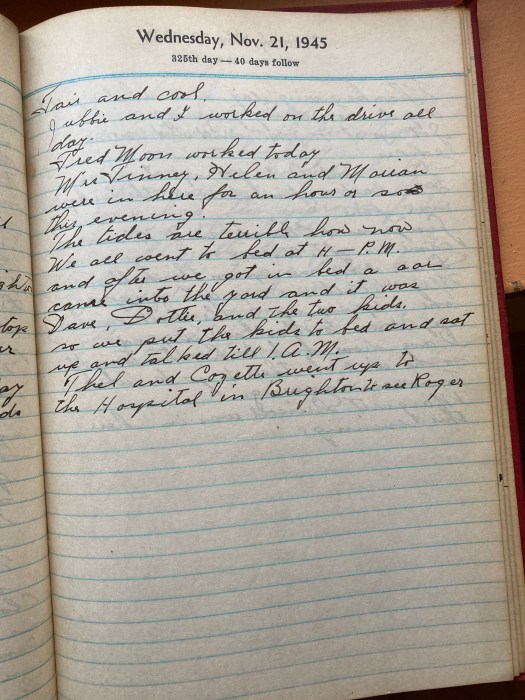 Wednesday, Nov. 21, 1945
325th day — 40 days follow
Fair and cool.
Jubbie and I worked on the drive all
day.
Fred Moon worked today
Mrs Tinney, Helen and Marian
were in here for an hour or so
this evening.
The tides are terrible how now
We all went to bed at H - P.M.
and after we got in bed a car
came into the yard and it was
Dave, Dottie, and the two kids.
so we put the kids to bed and sat
up and talked till 1. A.M.
Thel and Cozette went up to
the Hospital in Brighton to see Roger
ghts
top
r
ay
ds